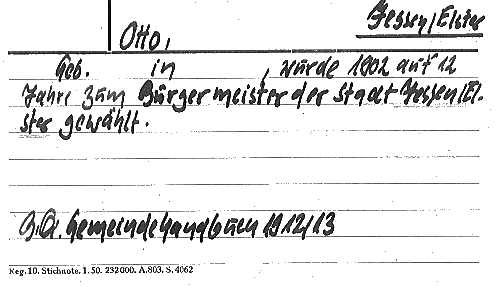 Jessen/Elster
Otto,
Geb. in , wurde 1902 auf 12
Jahre zum Bürgermeister der Stadt Jessen/El-
ster gewählt.
Gemeindehandbuch 1912/13
Reg. 10. Stichnote. 1. 50. 232000. A.803. S. 4062